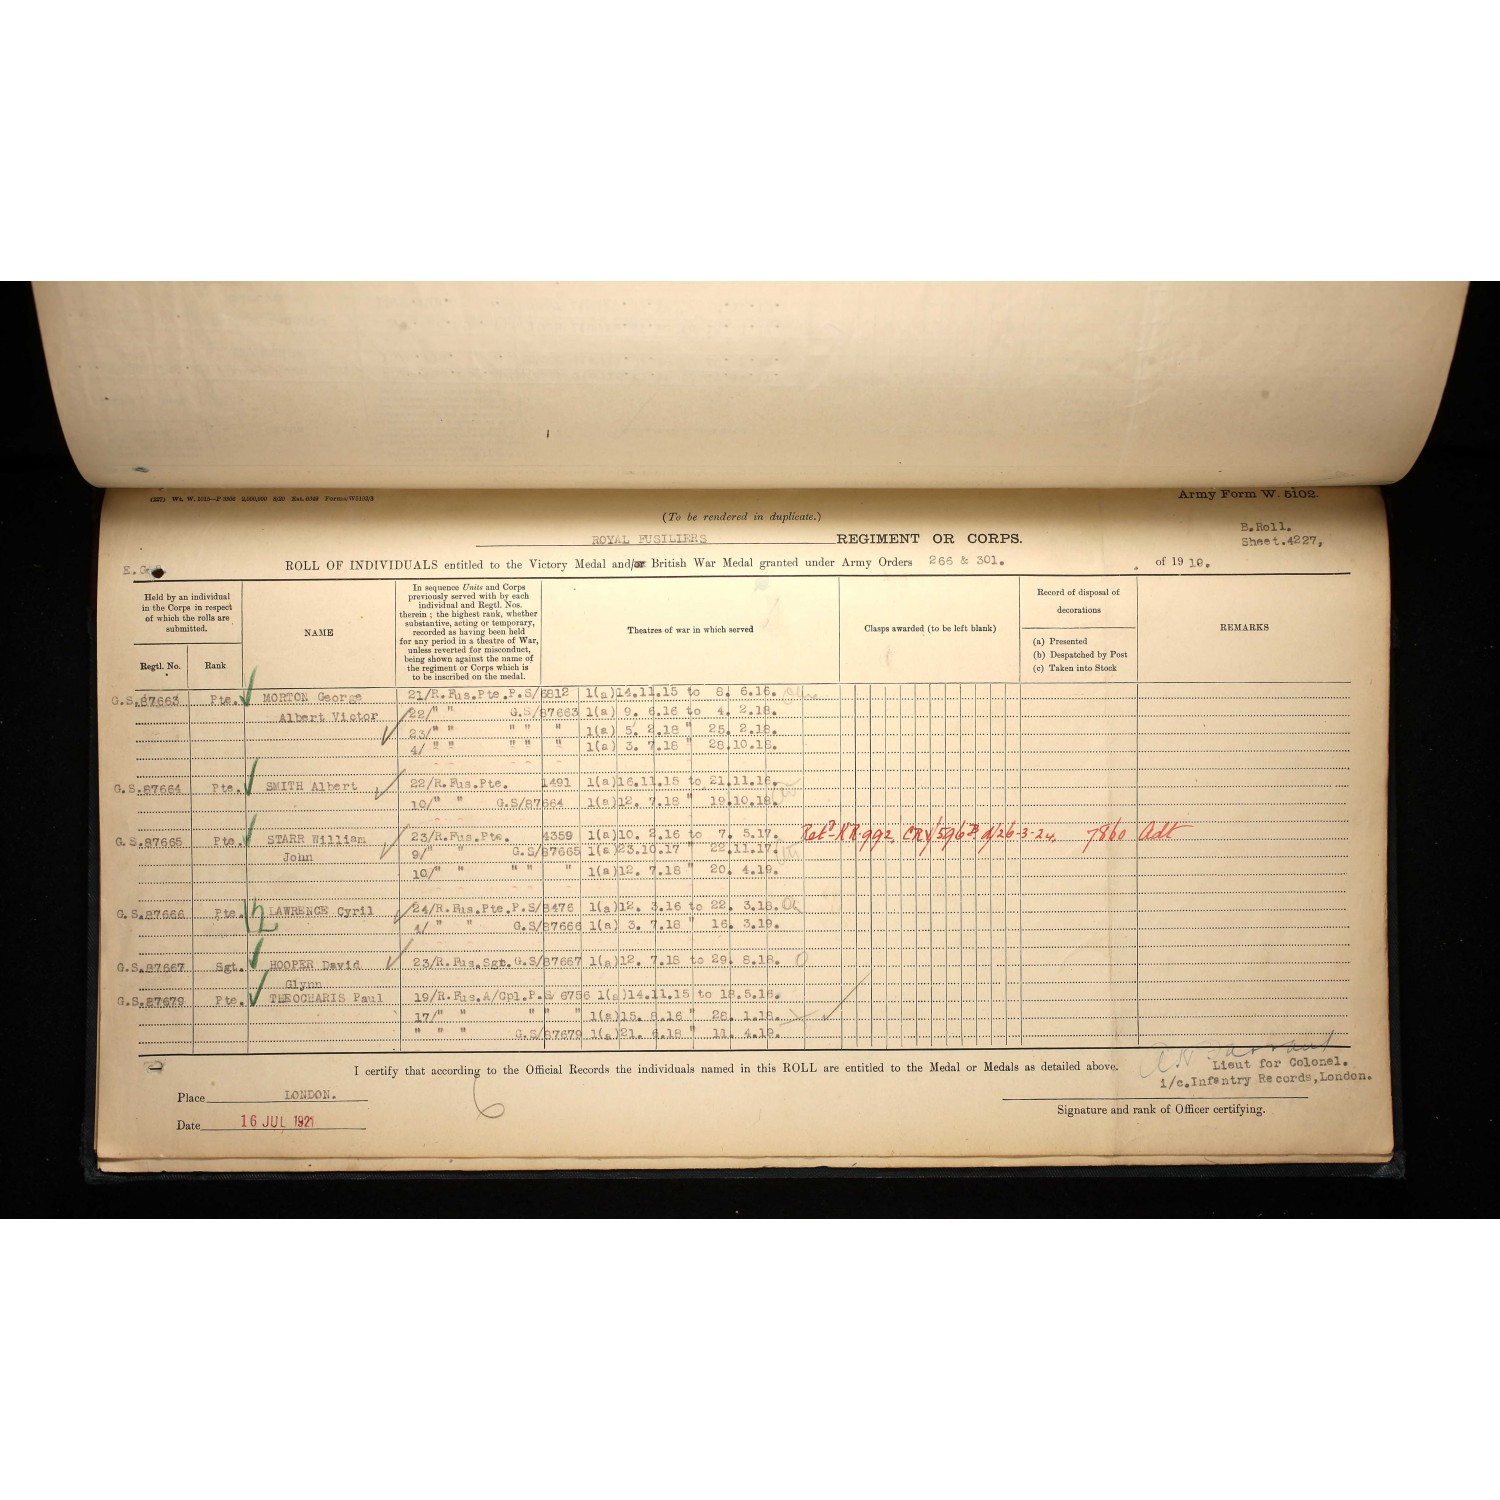 Army Form W. 5102.
(To be rendered in duplicate.)
B.Roll.
ROYAL FUSILIERS REGIMENT OR CORPS.
Sheet.4227,
ROLL OF INDIVIDUALS entitled to the Victory Medal and/or British War Medal granted under Army Orders 266 & 301. of 19 19.
Held by an individual
in the Corps in respect
of which the rolls are
submitted.
Regtl. No.
Rank
NAME
In sequence Units and Corps
previously served with by each
individual and Regtl. Nos.
therein ; the highest rank, whether
substantive, acting or temporary,
recorded as having been held
for any period in a theatre of War,
unless reverted for misconduct,
being shown against the name of
the regiment or Corps which is
to be inscribed on the medal.
Theatres of war in which served
Clasps awarded (to be left blank)
Record of disposal of
decorations
(a) Presented
(b) Despatched by Post
(c) Taken into Stock
REMARKS
G.S.87663 Pte. MORTON George 21/R.Fus.Pte.P.S/6812 1(a)14.11.15 to 8. 6.16.
Albert Victor 22/" " G.S/87663 1(a) 9. 6.16 to 4. 2.18.
23/" " " " " 1(a) 5. 2.18 " 25. 2.18.
4/ " " " " " 1(a) 3. 7.18 " 28.10.18.
G.S.87664 Pte. SMITH Albert 22/R.Fus.Pte. 1491 1(a)16.11.15 to 21.11.16.
10/" " G.S/87664 1(a)12. 7.18 " 19.10.18.
G.S.87665 Pte. STARR William 23/R.Fus.Pte. 4359 1(a)10. 2.16 to 7. 5.17. Retd KR.992. CRV/596B d/26-3-24. 7860 Adt
John 9/" " G.S/87665 1(a)23.10.17 " 22.11.17.
10/" " " " " 1(a)12. 7.18 " 20. 4.19.
G.S.87666 Pte. LAWRENCE Cyril 24/R.Fus.Pte.P.S/8476 1(a)12. 3.16 to 22. 3.18.
4/ " " G.S/87666 1(a) 3. 7.18 " 16. 3.19.
G.S.87667 Sgt. HOOPER David 23/R.Fus.Sgt.G.S/87667 1(a)12. 7.18 to 29. 8.18.
Glynn
G.S.87679 Pte. THEOCHARIS Paul 19/R.Fus.A/Cpl.P.S/6756 1(a)14.11.15 to 18.5.16.
17/" " " " " 1(a)15. 8.16 " 28. 1.18.
" " " G.S/87679 1(a)21. 6.18 " 11. 4.19.
I certify that according to the Official Records the individuals named in this ROLL are entitled to the Medal or Medals as detailed above.
Lieut for Colonel.
i/c.Infantry Records,London.
Place LONDON.
Signature and rank of Officer certifying.
Date 16 JUL 1921